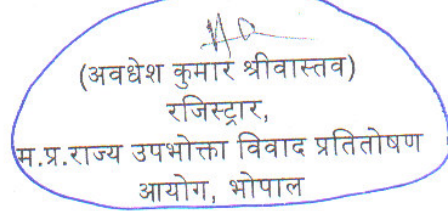 (अवधेश कुमार श्रीवास्तव)
रजिस्ट्रार,
म.प्र.राज्य उपभोक्ता विवाद प्रतितोषण
आयोग, भोपाल